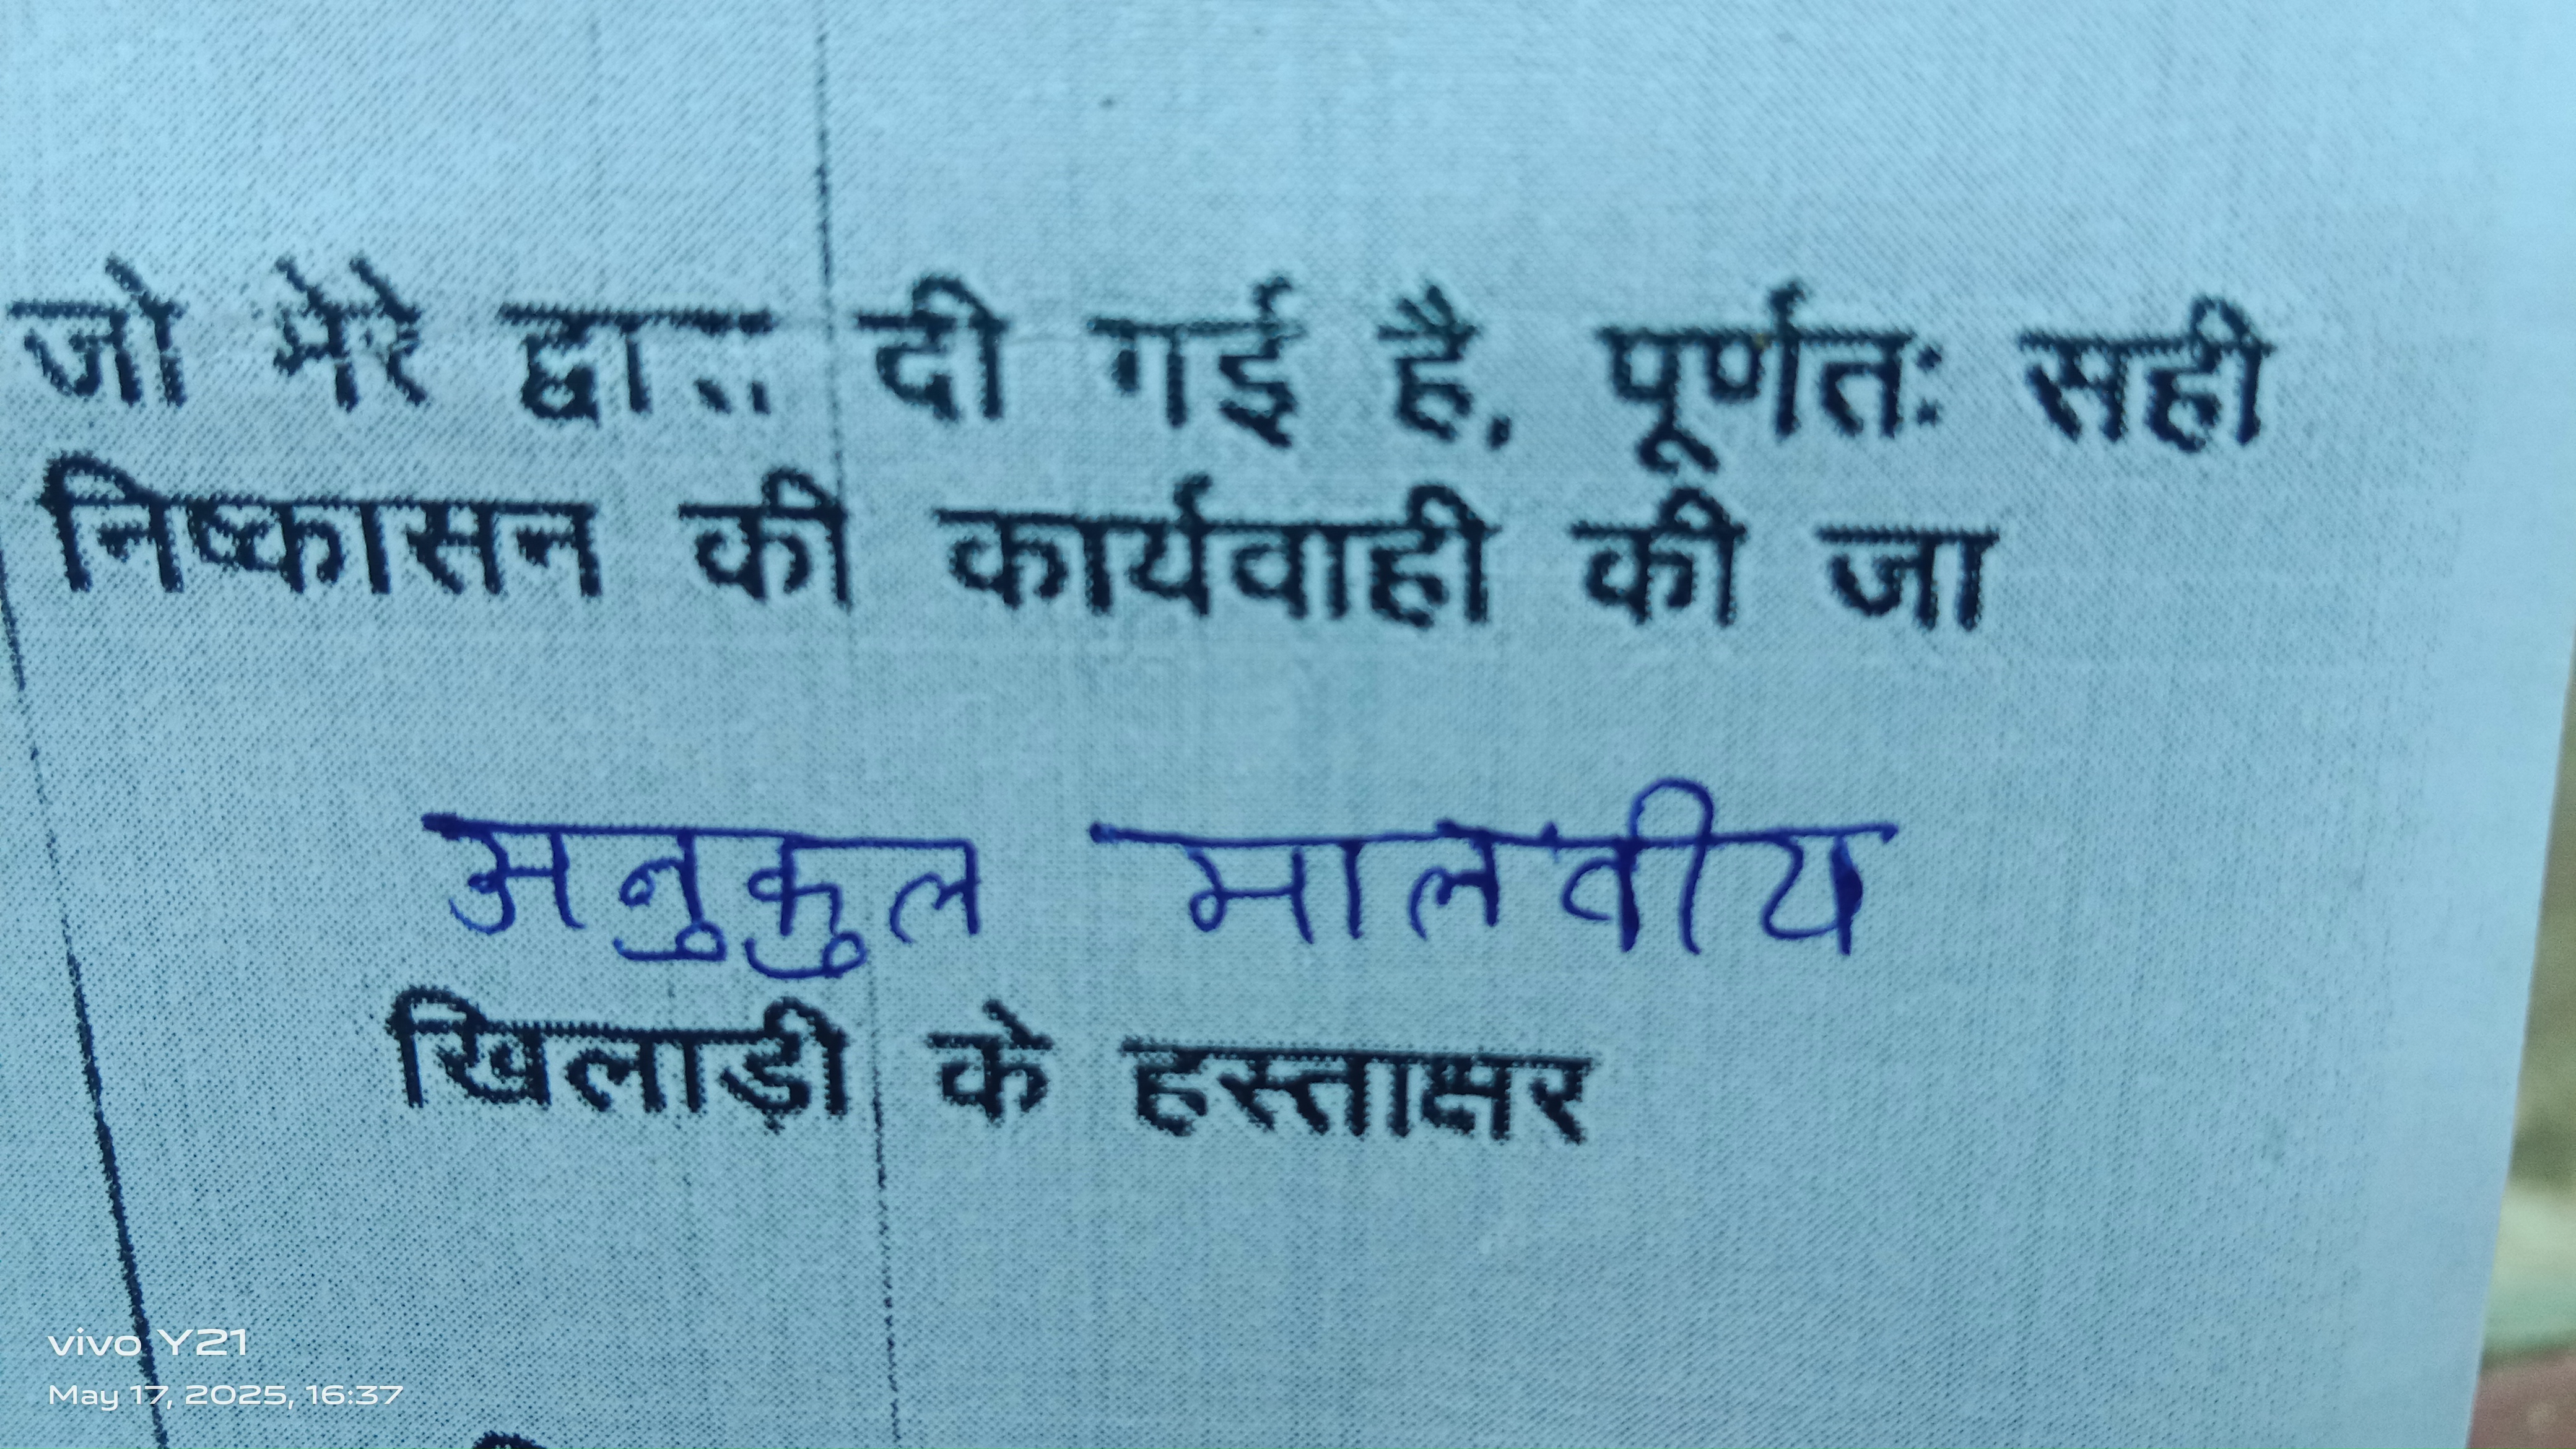 जो मेरे द्वारा दी गई है, पूर्णतः सही
निष्कासन की कार्यवाही की जा
अनुकुल मालवीय
खिलाड़ी के हस्ताक्षर
vivo Y21
May 17, 2025, 16:37